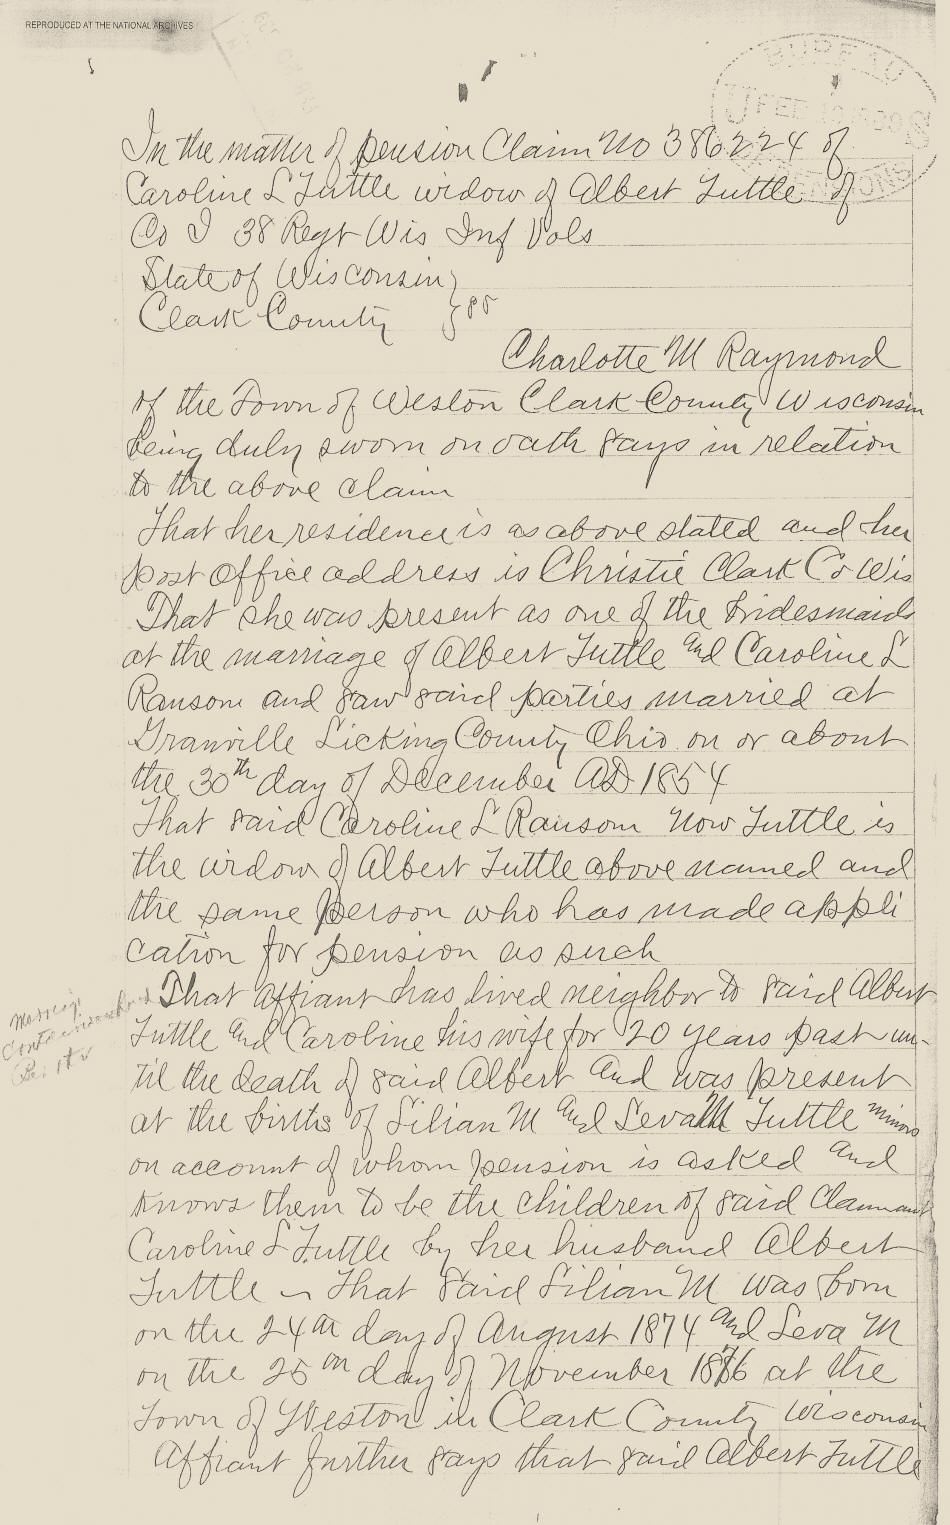 REPRODUCED AT THE NATIONAL ARCHIVES
BUREAU
FEB
In the matter of pension Claim No 386224 of
Caroline L Tuttle widow of Albert Tuttle of
Co I 38 Regt Wis Inf Vols
State of Wisconsin }
Clark County } ss
Charlotte M Raymond
of the Town of Weston Clark County Wisconsin
being duly sworn on oath says in relation
to the above claim
That her residence is as above stated and her
post office address is Christie Clark Co Wis
That she was present as one of the bridesmaids
at the marriage of Albert Tuttle and Caroline L
Ransom and saw said parties married at
Granville Licking County Ohio on or about
the 30th day of December AD 1854
That said Caroline L Ransom now Tuttle is
the widow of Albert Tuttle above named and
the same person who has made appli
cation for pension as such
That affiant has lived neighbor to said Albert
Tuttle and Caroline his wife for 20 years past un-
til the death of said Albert and was present
at the births of Lilian M and Leva M Tuttle minors
on account of whom pension is asked and
knows them to be the children of said Claimant
Caroline L Tuttle by her husband Albert
Tuttle - That said Lilian M was born
on the 24th day of August 1874 and Leva M
on the 25th day of November 1876 at the
Town of Weston in Clark County Wisconsin
Affiant further says that said Albert Tuttle